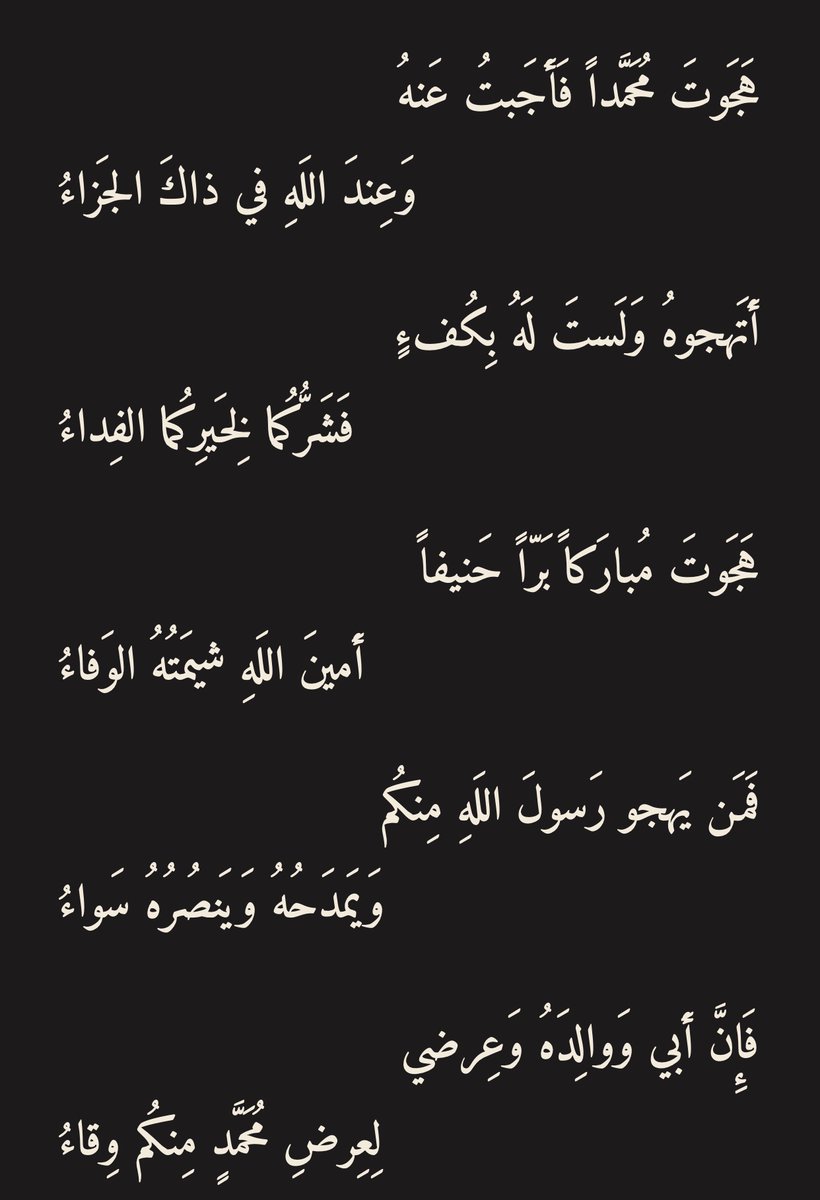 هَجَوتَ مُحَمَّداً فَأَجَبتُ عَنهُ
وَعِندَ اللَهِ في ذاكَ الجَزاءُ
أَتَهجوهُ وَلَستَ لَهُ بِكُفءٍ
فَشَرُّكُما لِخَيرِكُما الفِداءُ
هَجَوتَ مُبارَكاً بَرّاً حَنيفاً
أَمينَ اللَهِ شيمَتُهُ الوَفاءُ
فَمَن يَهجو رَسولَ اللَهِ مِنكُم
وَيَمدَحُهُ وَيَنصُرُهُ سَواءُ
فَإِنَّ أَبي وَوالِدَهُ وَعِرضي
لِعِرضِ مُحَمَّدٍ مِنكُم وِقاءُ